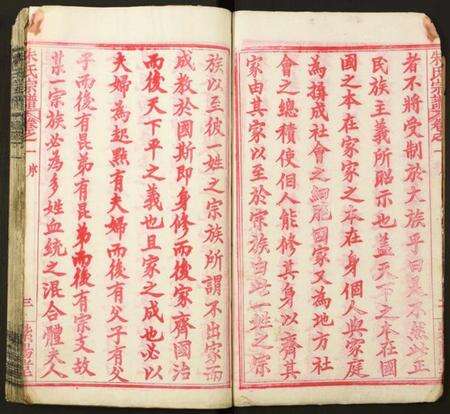 者不將受制於大族乎曰是不然此正
民族主義所昭示也蓋天下之本在國
國之本在家家之本在身個人與家庭
為構成社會之細胞國家又為地方社
會之總積使個人能修其身以齊其
家由其家以至於宗族由此一姓之宗
族以至彼一姓之宗族所謂不出家而
成教於國斯即身修而後家齊國治
而後天下平之義也且家之成也必以
夫婦為起點有夫婦而後有父子有父
子而後有昆弟有昆弟而後有宗支故
某一宗族必為多姓血統之混合體夫人
朱氏宗譜卷之一 序 三